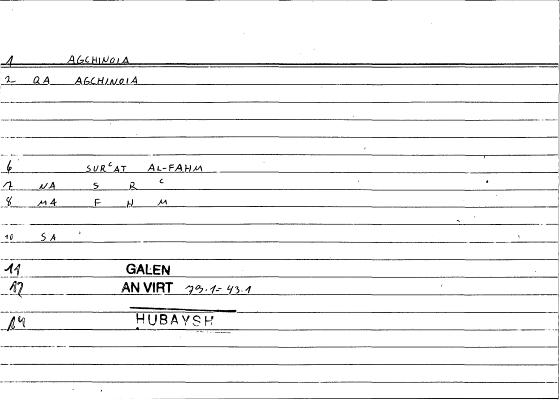 1 AGCHINOIA
2 QA AGCHINOIA
6 SURᶜAT AL-FAHM
7 NA S R ᶜ
8 MA F H M
10 SA
11 GALEN
12 AN VIRT 79.1= 43.1
14 HUBAYSH